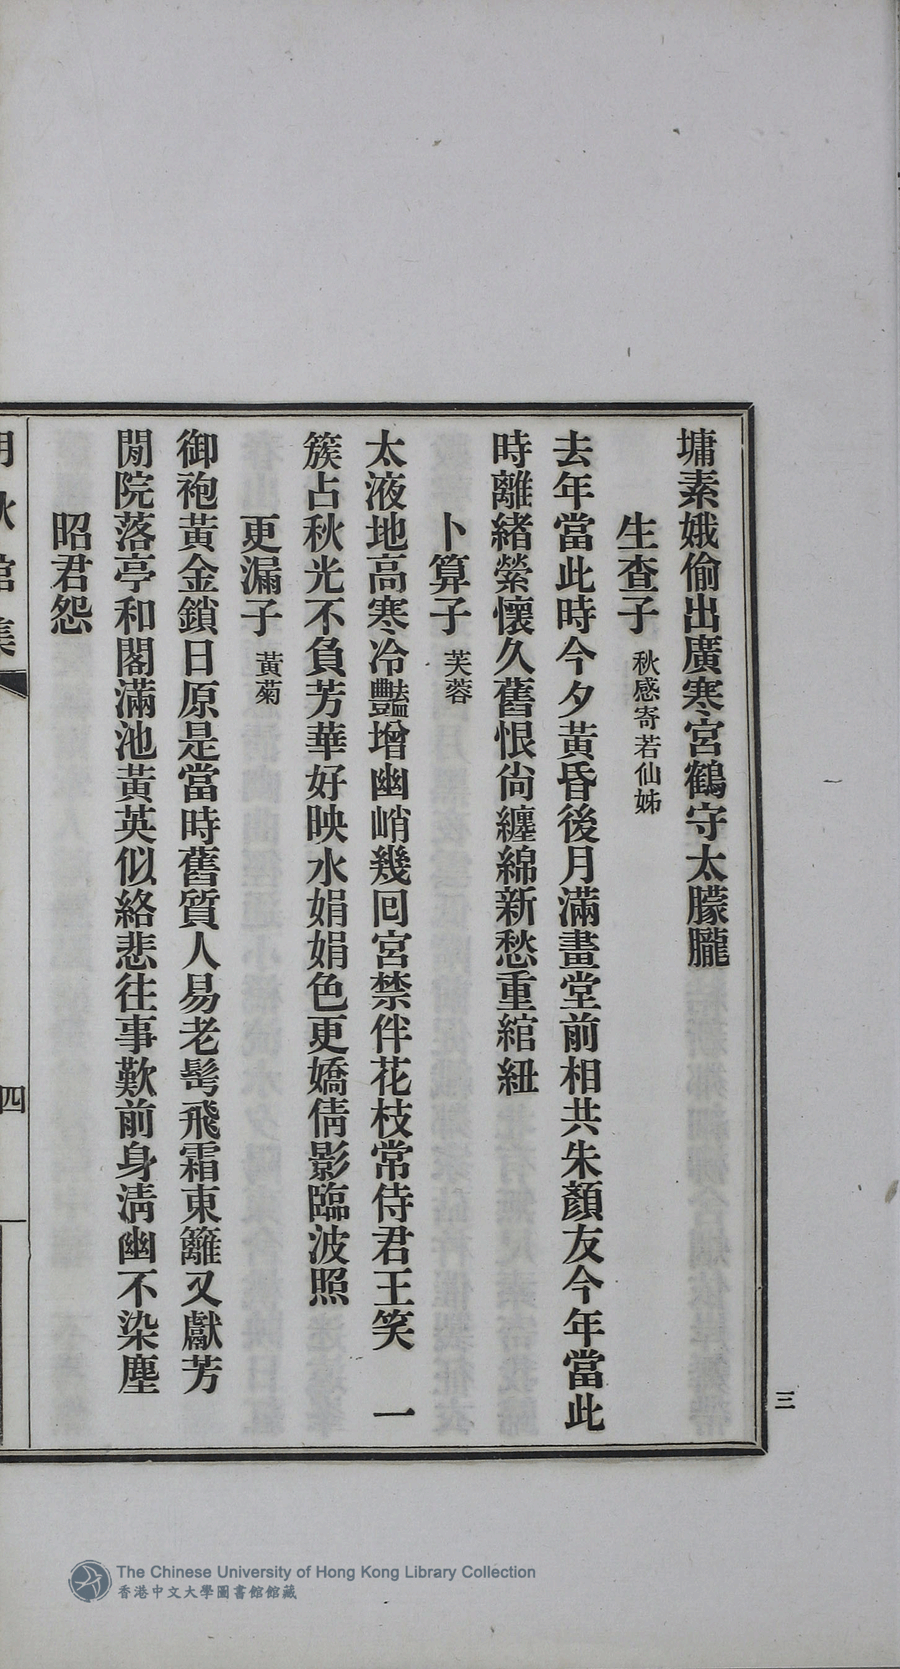 墉素娥偷出廣寒宮鶴守太朦朧
生查子 秋感寄若仙姊
去年當此時今夕黃昏後月滿畫堂前相共朱顏友今年當此
時離緒縈懷久舊恨尙纏綿新愁重綰紐
卜算子 芙蓉
太液地高寒冷豔增幽峭幾回宮禁伴花枝常侍君王笑 一
簇占秋光不負芳華好映水娟娟色更嬌倩影臨波照
更漏子 黃菊
御袍黃金鎖日原是當時舊質人易老髩飛霜東籬又獻芳
閒院落亭和閣滿池黃英似絡悲往事歎前身淸幽不染塵
昭君怨
秋館集
四
三
The Chinese University of Hong Kong Library Collection
香港中文大學圖書館館藏